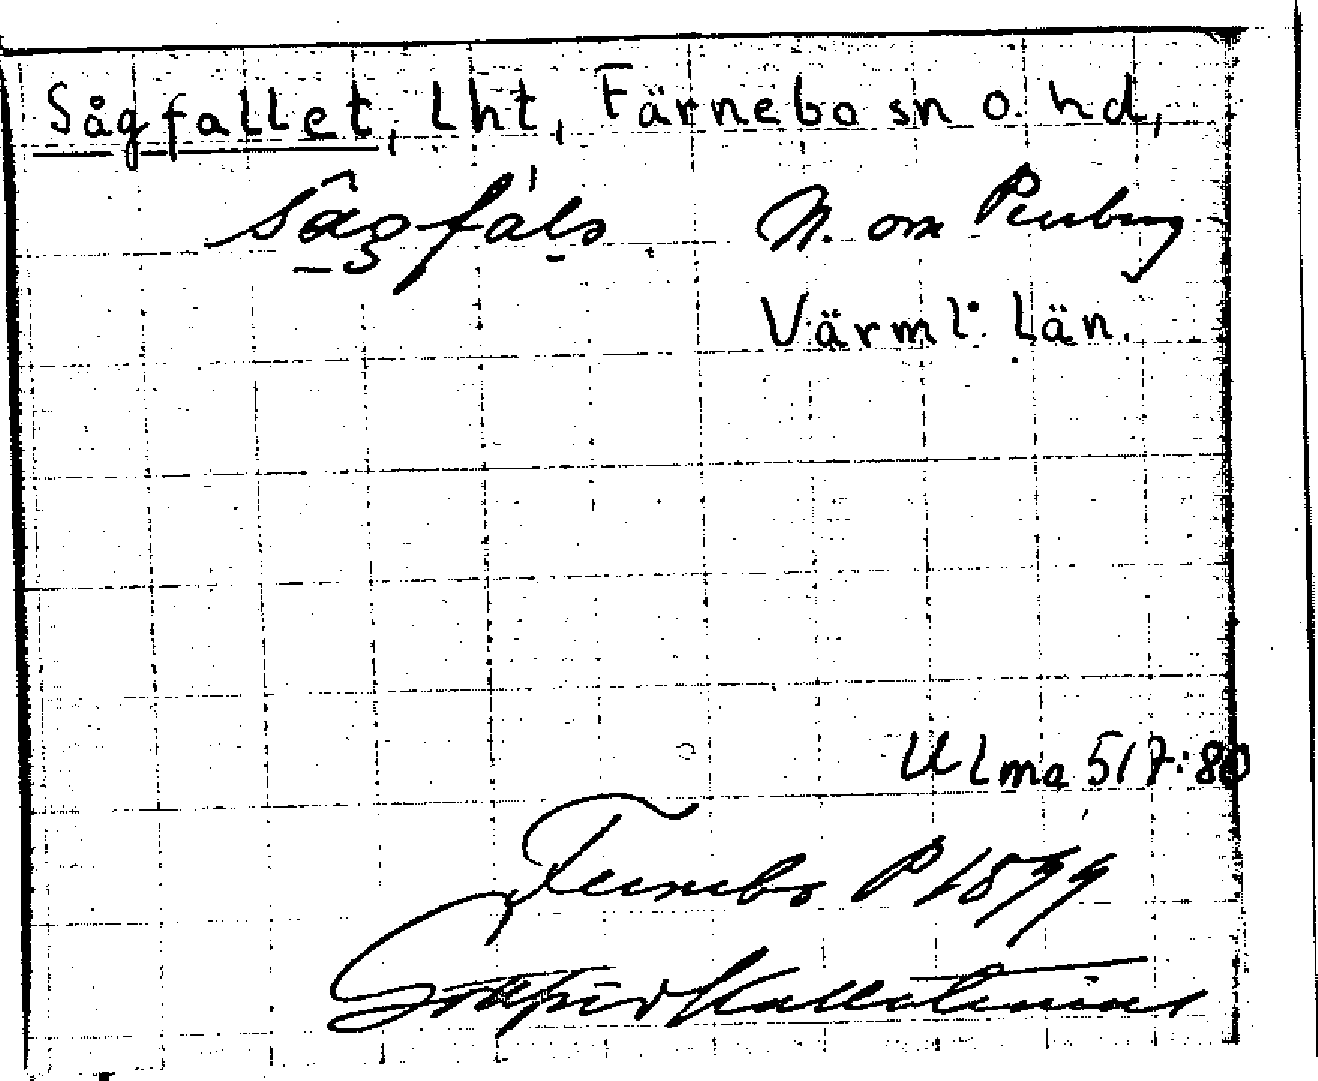 Sågfallet, Lht, Färnebo sn o. hd,
sâgfáls N. om Persberg
Värml. Län.
Ulma 517:80
Fernebo P 1879
Gottfrid Kallstenius